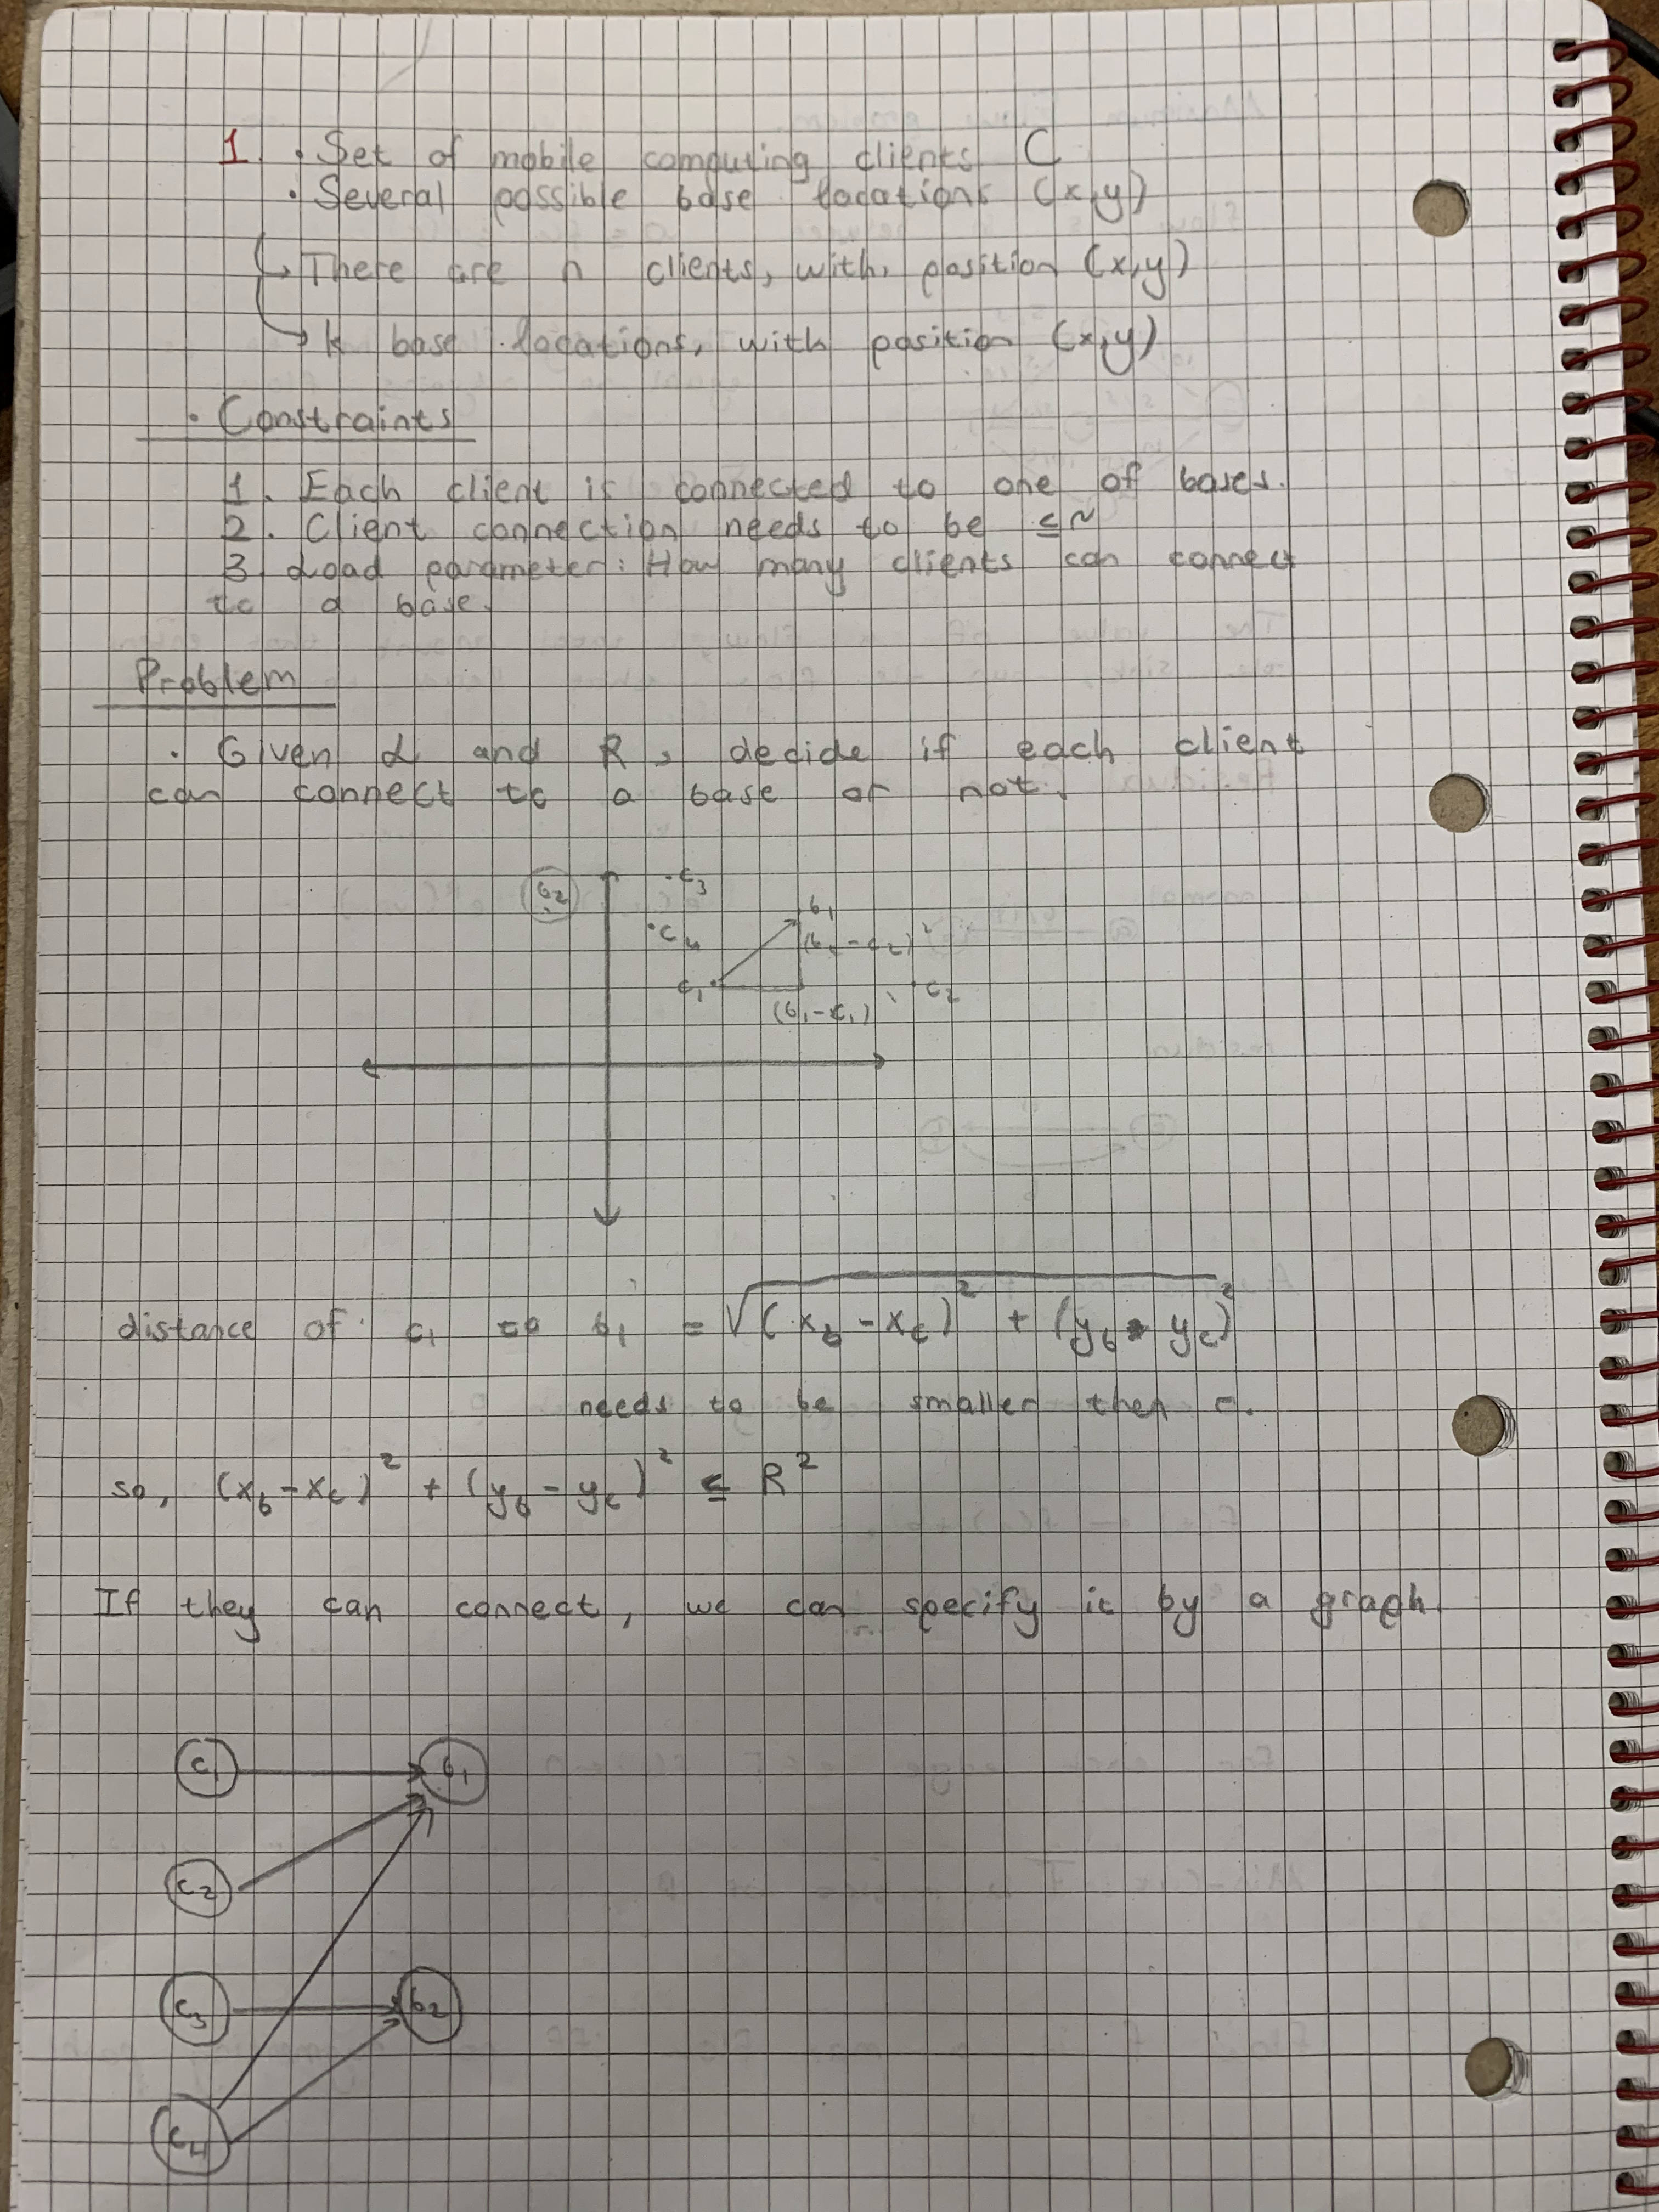 1. • Set of mobile computing clients C
• Several possible base locations (x,y)
There are n clients, with position (x,y)
k base locations, with position (x,y)
• Constraints
1. Each client is connected to one of bases.
2. Client connection needs to be ≤ r
3. Load parameter: How many clients can connect
to a base.
Problem
• Given L and R, decide if each client
can connect to a base or not.
b2 c3
b1
c4 (b2-c2)²
c1 c2
(b1-c1)
distance of c1 to b1 = √(xb - xc)² + (yb - yc)²
needs to be smaller then r.
so, (xb - xc)² + (yb - yc)² ≤ R²
If they can connect, we can specify it by a graph.
c1 b1
c2
c3 b2
c4